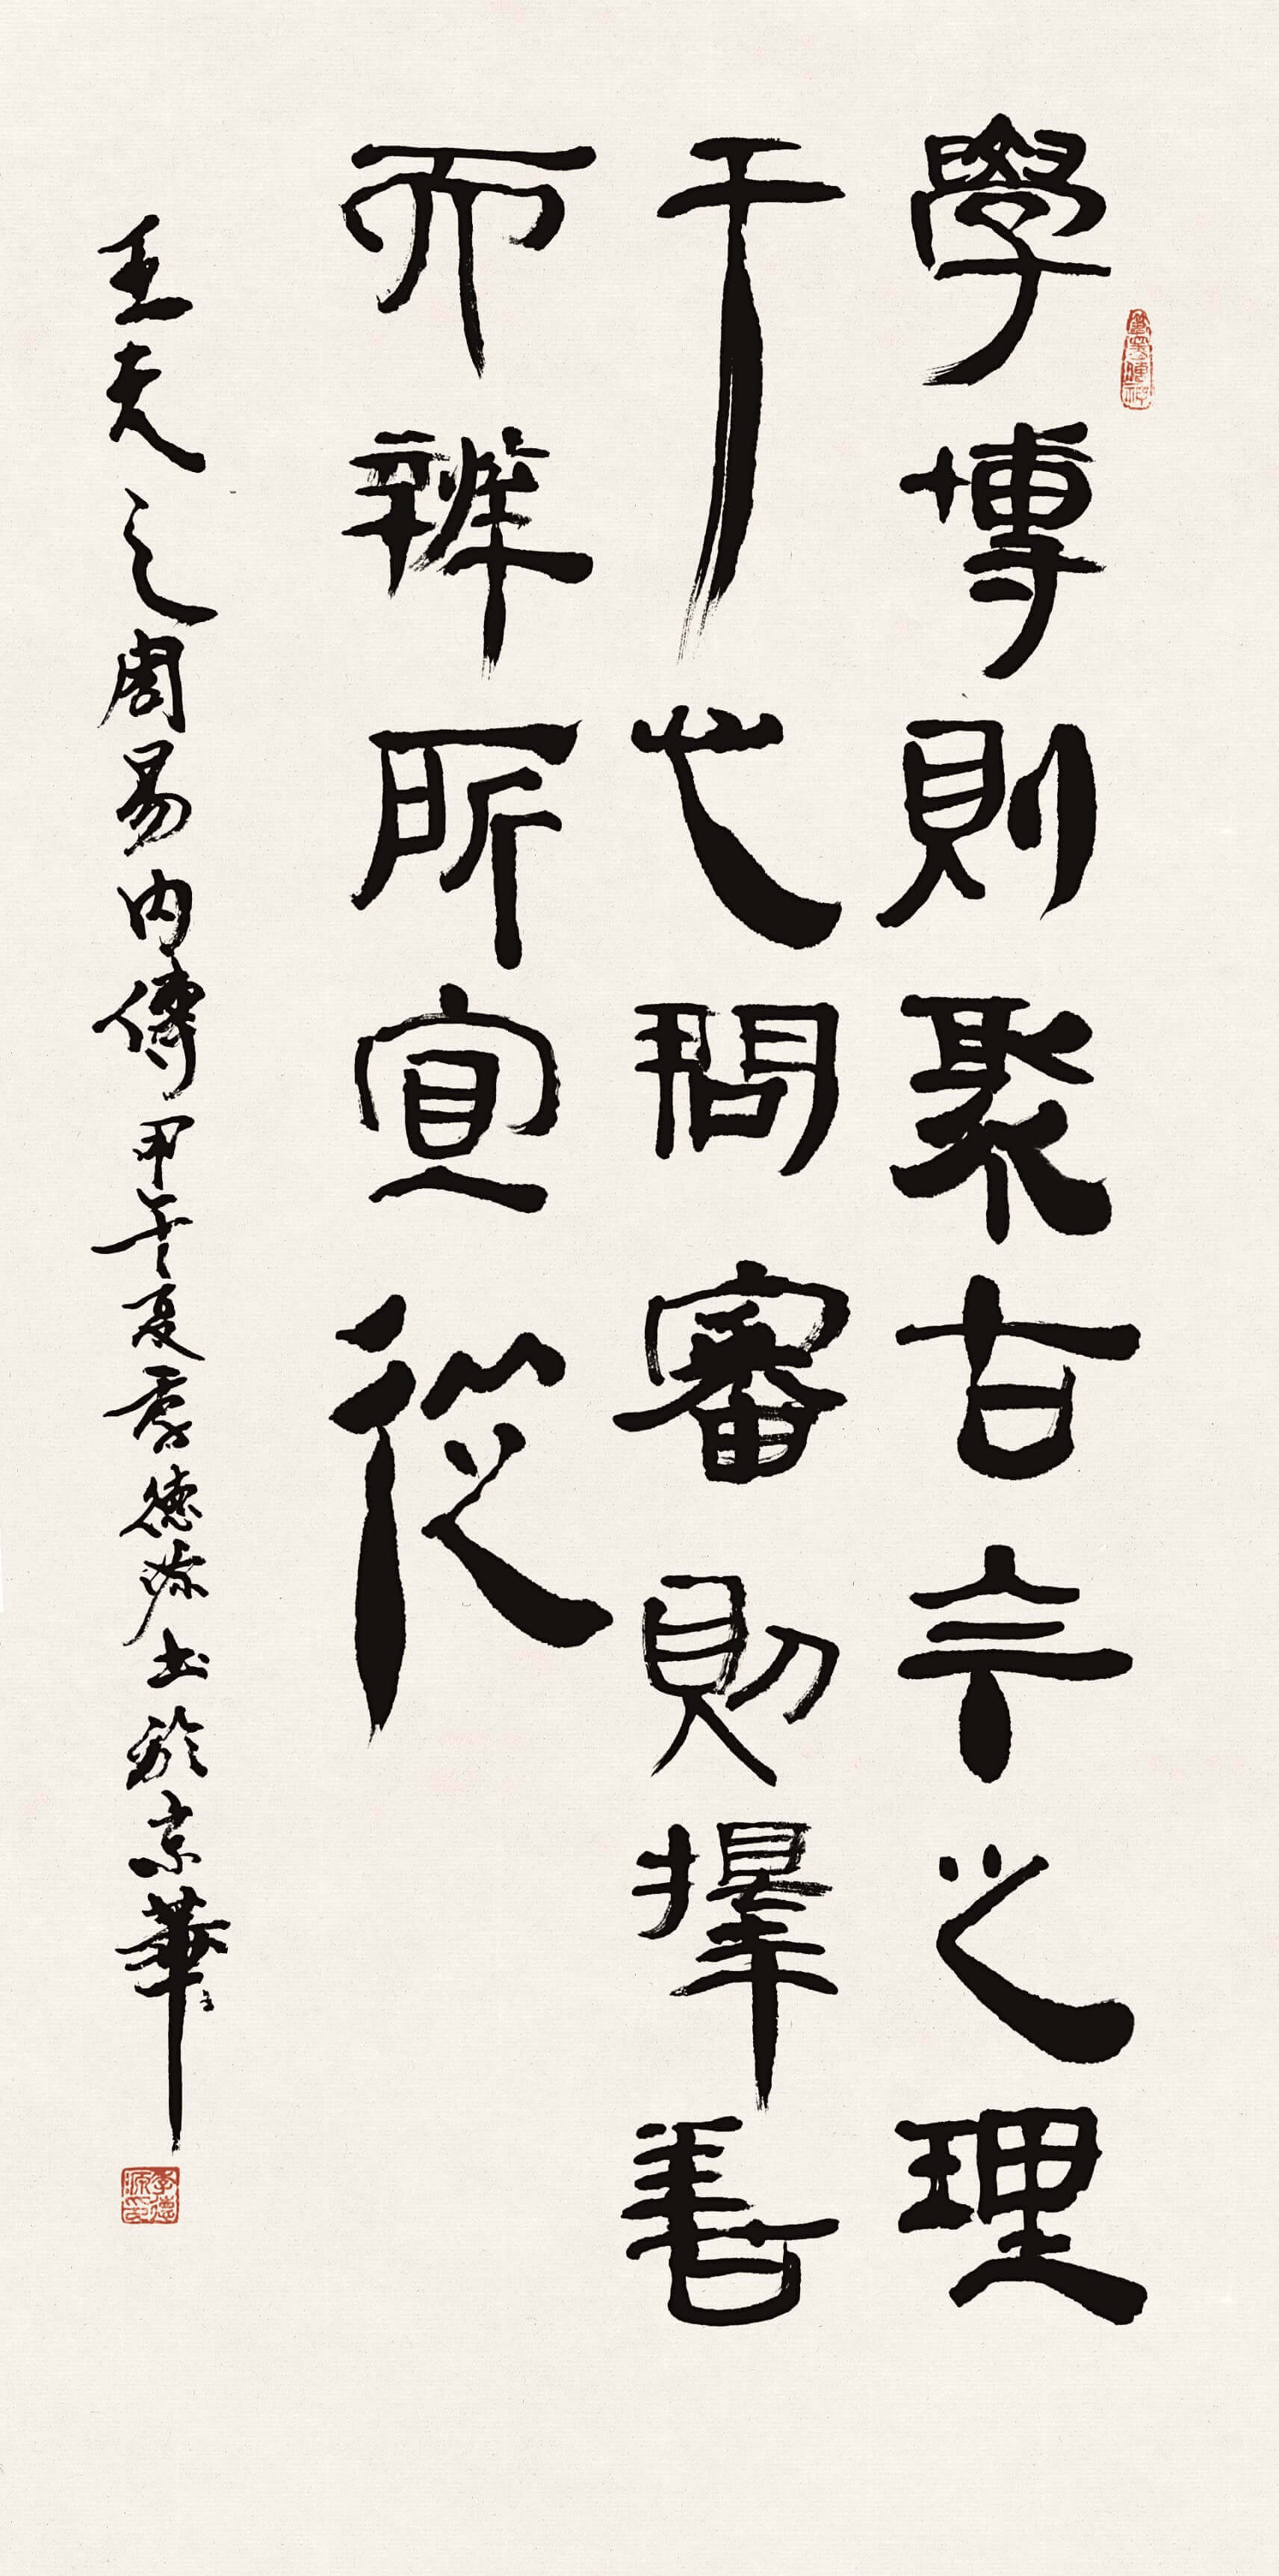 學博則聚古言之理
于心問審則擇善
而辨所宜從
王夫之周易內傳甲午夏李德源書於京華
李德源印